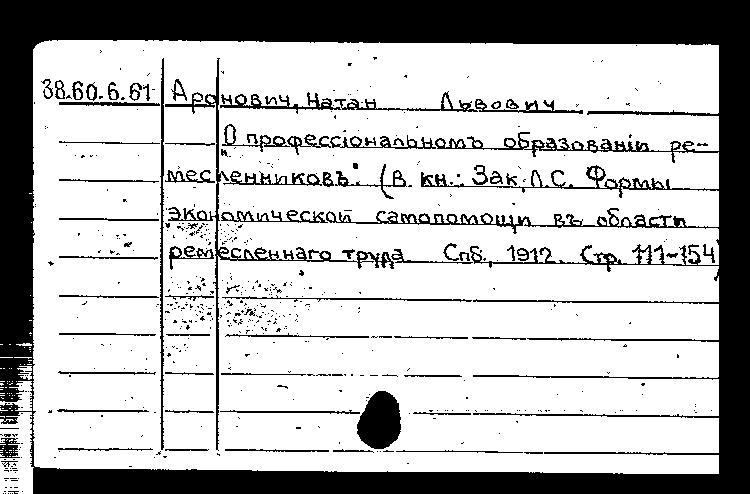 38.60.6.61 Аронович, Натан Львович.
"О профессіональномъ образованіи ре-
месленниковъ". (В кн.: Зак, Л.С. Формы
экономической самопомощи въ области
ремесленнаго труда. Спб., 1912. Стр. 111-154)